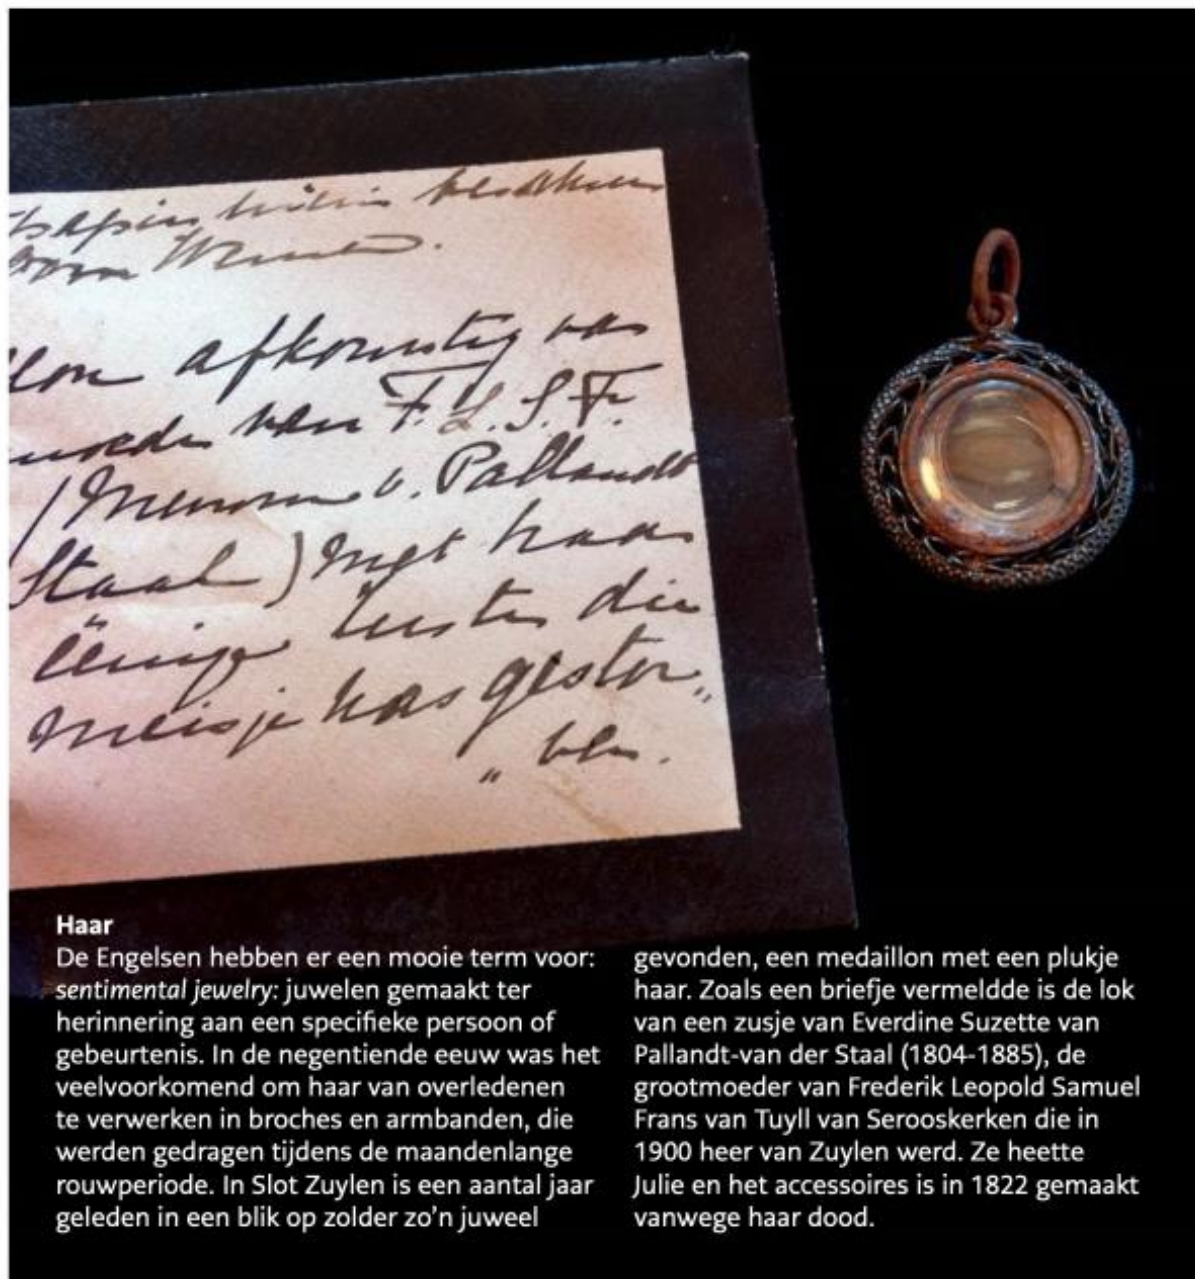 afkomstig van
van F. L. S. F.
v. Pallandt
Staal) Met haar
ëenige zuster die
meisje was gestor„
„ ven.
Haar
De Engelsen hebben er een mooie term voor:
sentimental jewelry: juwelen gemaakt ter
herinnering aan een specifieke persoon of
gebeurtenis. In de negentiende eeuw was het
veelvoorkomend om haar van overledenen
te verwerken in broches en armbanden, die
werden gedragen tijdens de maandenlange
rouwperiode. In Slot Zuylen is een aantal jaar
geleden in een blik op zolder zo’n juweel
gevonden, een medaillon met een plukje
haar. Zoals een briefje vermeldde is de lok
van een zusje van Everdine Suzette van
Pallandt-van der Staal (1804-1885), de
grootmoeder van Frederik Leopold Samuel
Frans van Tuyll van Serooskerken die in
1900 heer van Zuylen werd. Ze heette
Julie en het accessoires is in 1822 gemaakt
vanwege haar dood.